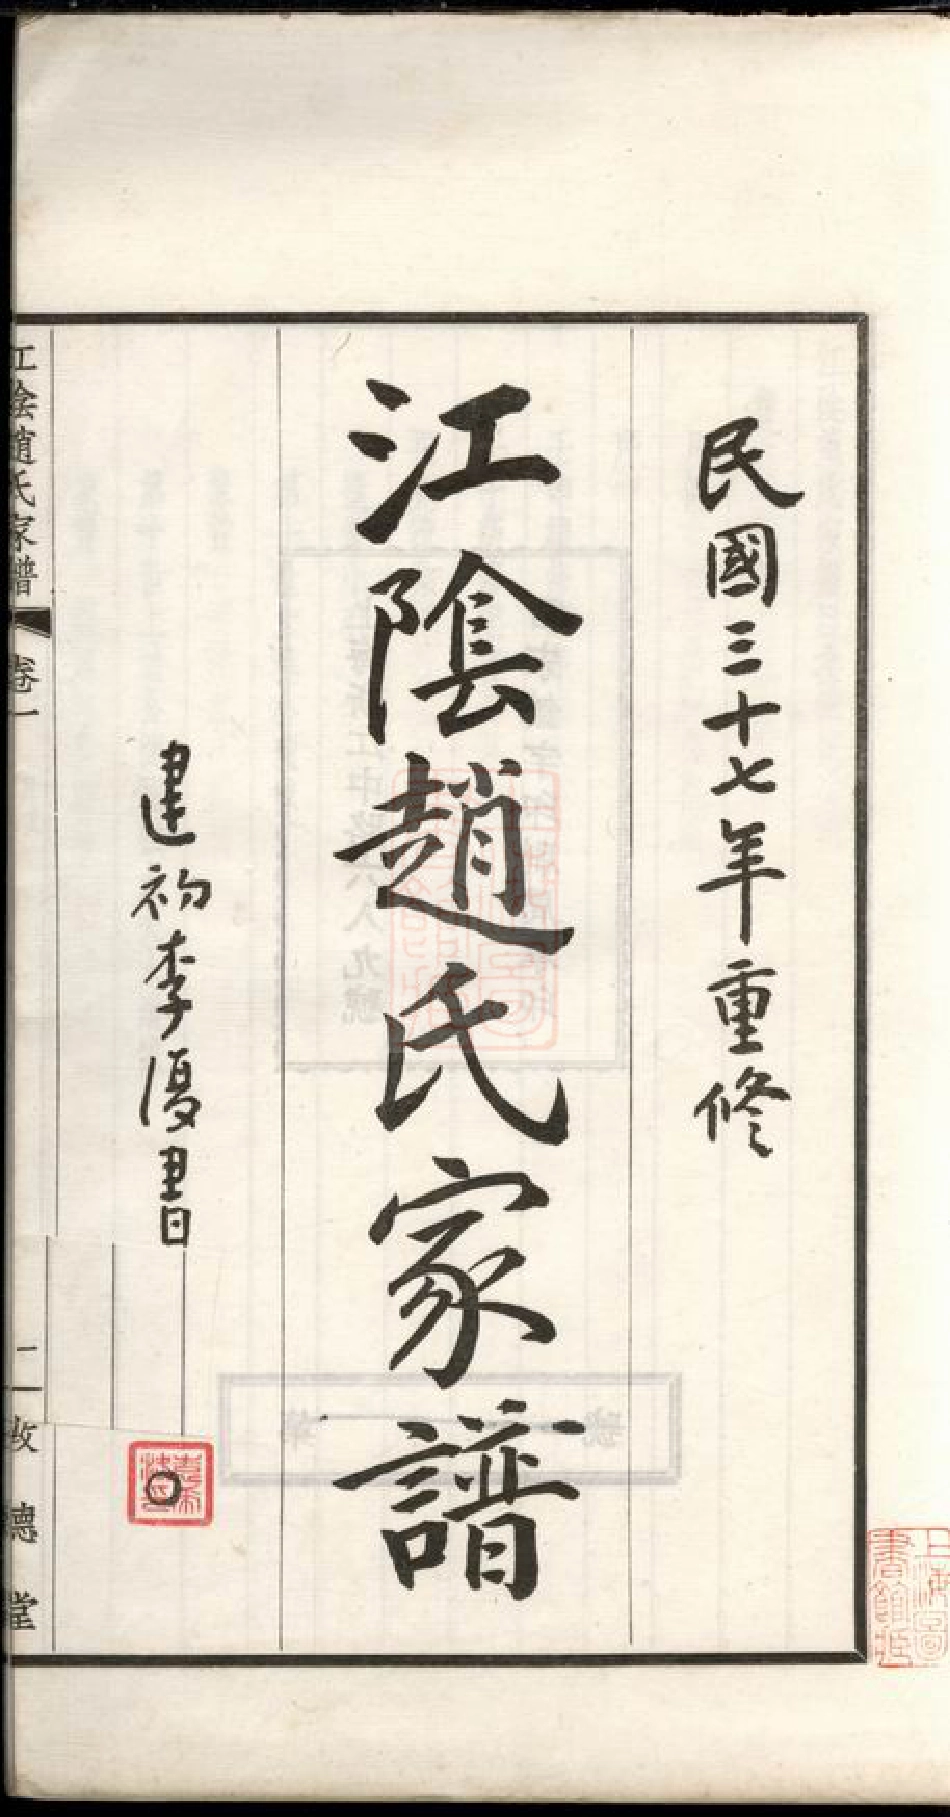 民國三十七年重修
江陰趙氏家譜
建初李復書
江陰趙氏家譜 卷一 二 敦德堂
上海圖書館藏